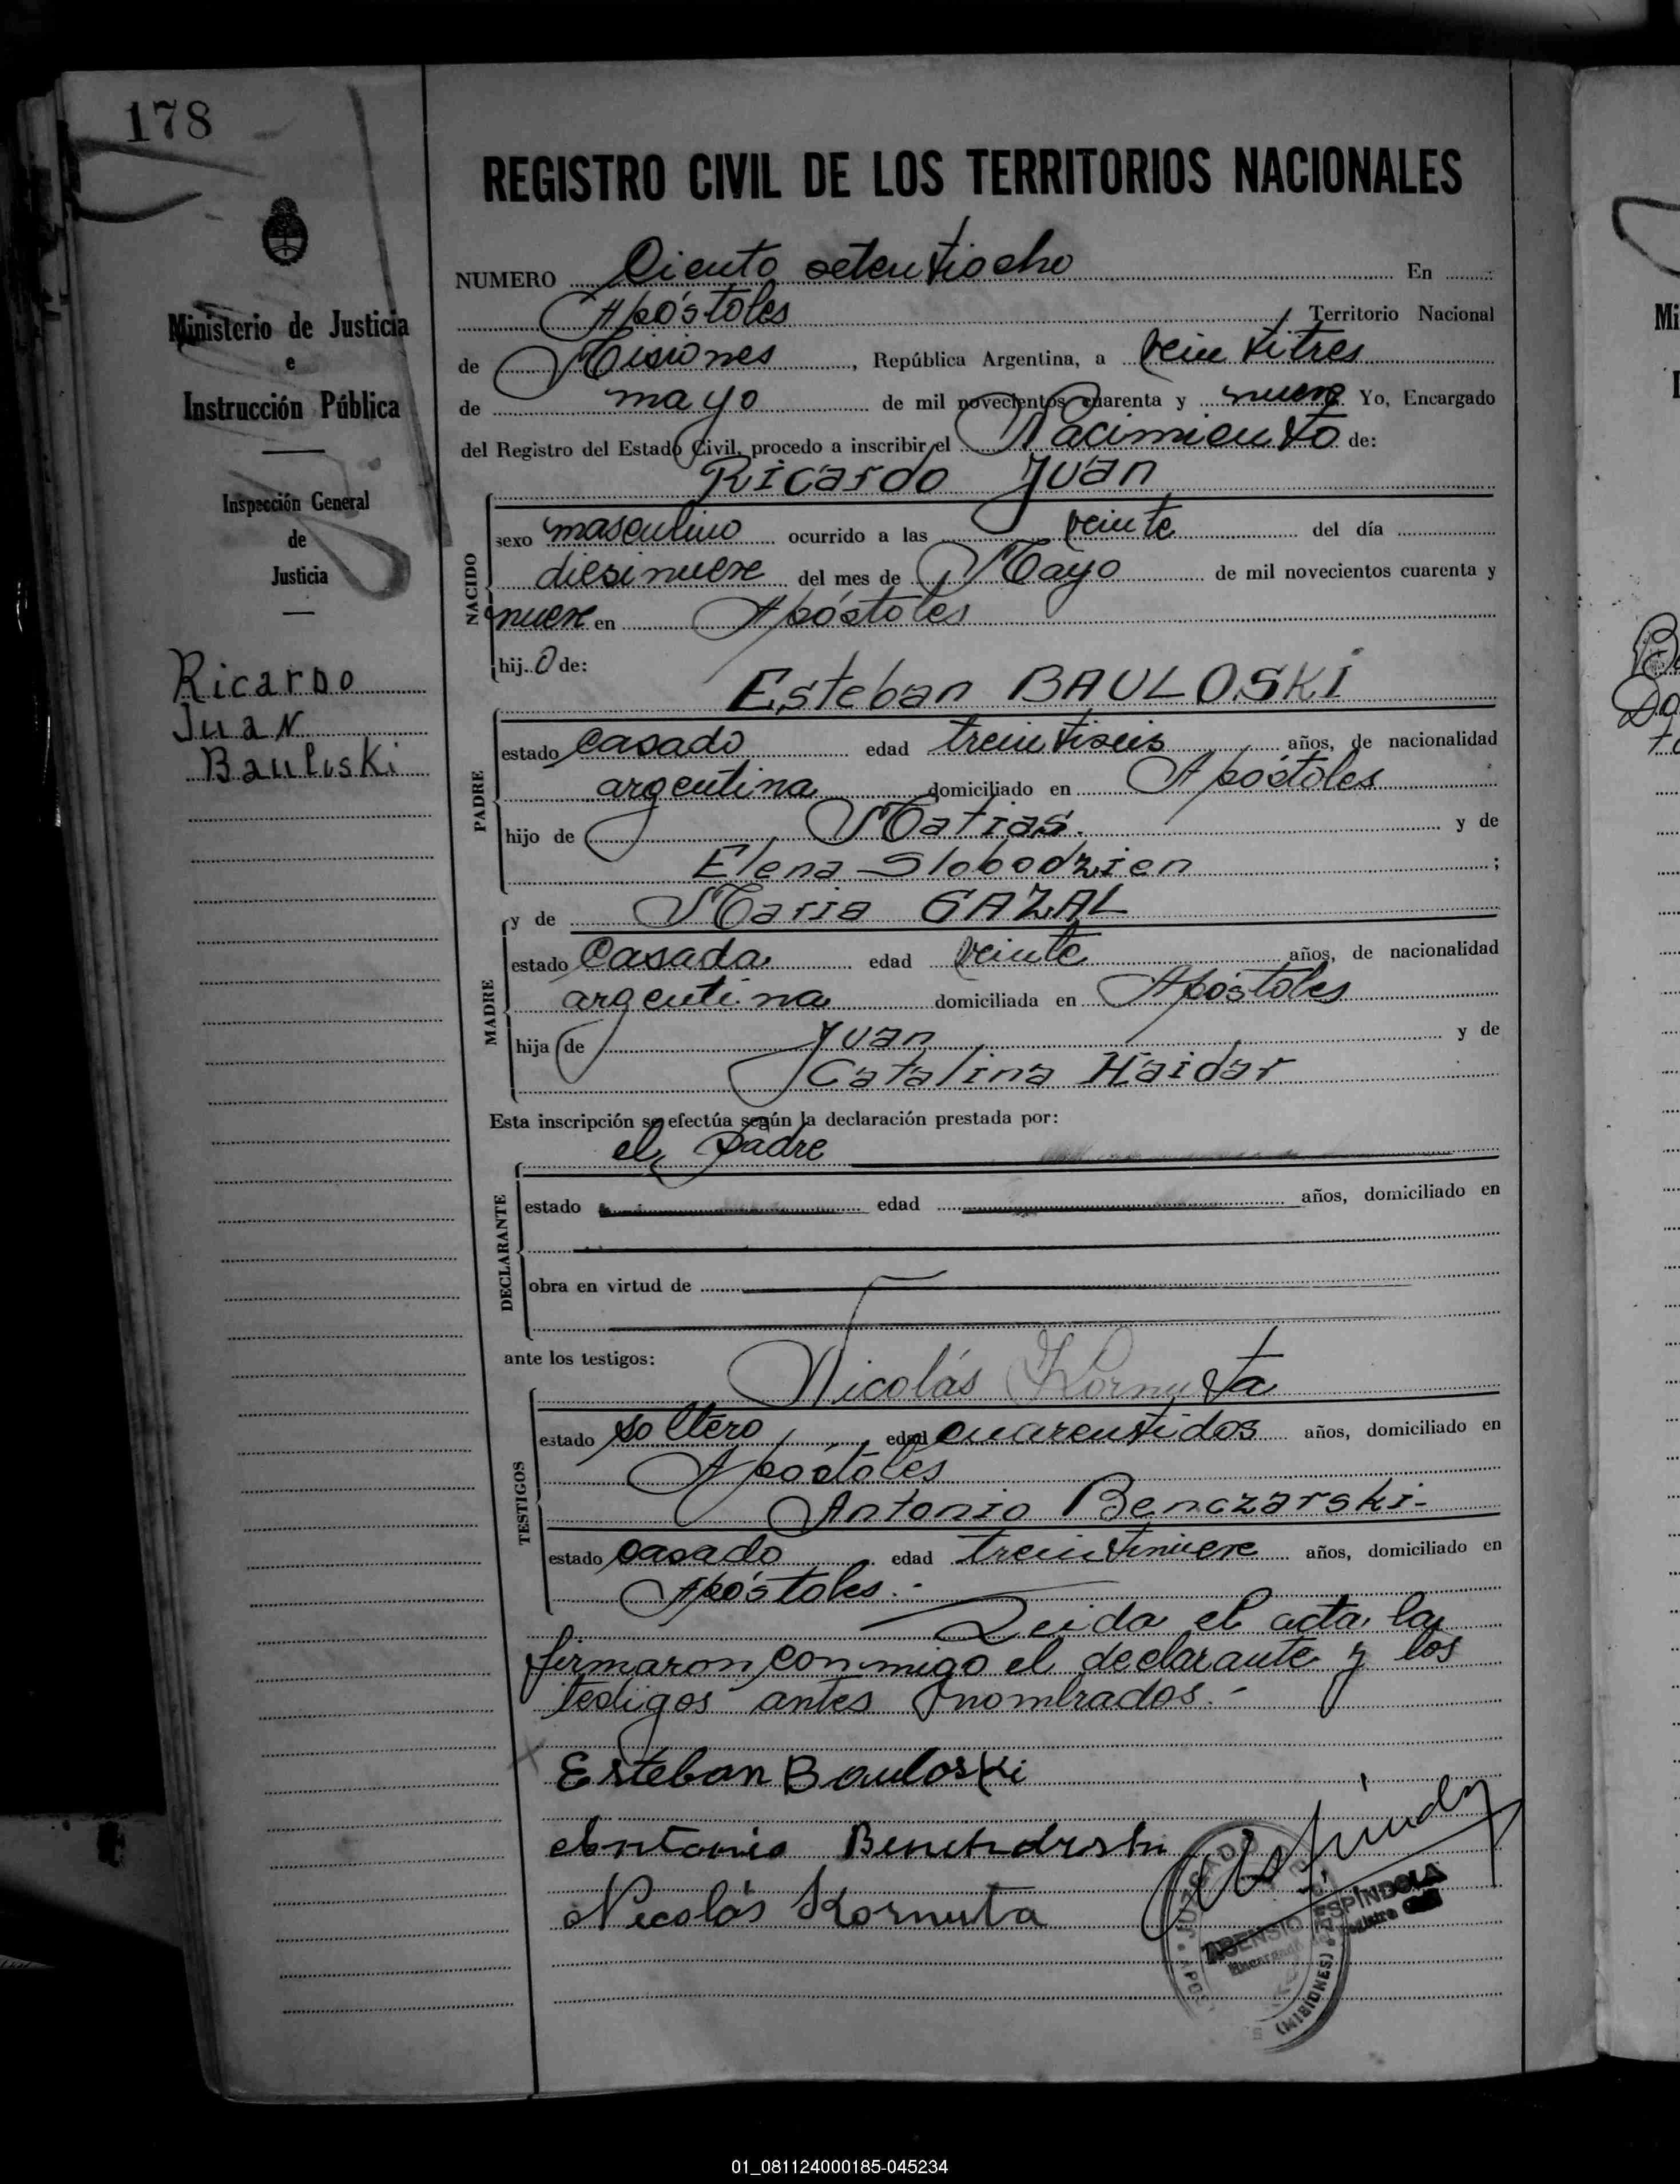 178
REGISTRO CIVIL DE LOS TERRITORIOS NACIONALES
Ministerio de Justicia
e
Instrucción Pública
Inspección General
de
Justicia
Ricardo
Juan
Bauloski
NUMERO Ciento setentiocho En
Apóstoles, Territorio Nacional
de Misiones, República Argentina, a veintitres
de mayo de mil novecientos cuarenta y nueve Yo, Encargado
del Registro del Estado Civil, procedo a inscribir el Nacimiento de:
Ricardo Juan
NACIDO
sexo masculino ocurrido a las veinte del día
diesinueve del mes de Mayo de mil novecientos cuarenta y
nueve en Apóstoles
hijo de:
Esteban BAULOSKI
PADRE
estado casado edad treintiseis años, de nacionalidad
argentina domiciliado en Apóstoles
hijo de Matias. y de
Elena Slobodzien ;
y de Maria GAZAL
MADRE
estado Casada edad veinte años, de nacionalidad
argentina domiciliada en Apóstoles
hija de Juan y de
Catalina Haidar
Esta inscripción se efectúa según la declaración prestada por:
el Padre
DECLARANTE
estado edad años, domiciliado en
obra en virtud de
ante los testigos:
Nicolás Kornuta
TESTIGOS
estado soltero edad cuarentidos años, domiciliado en
Apóstoles
Antonio Benczarski-
estado casado edad treintinueve años, domiciliado en
Apóstoles.-
Leida el acta, la
firmaron conmigo el declarante y los
testigos antes nombrados.-
Esteban Bauloski
Antonio
Nicolás Kornuta
JUZGADO
ESPÍNDOLA
Encargado del Registro
(MISIONES)
01_081124000185-045234